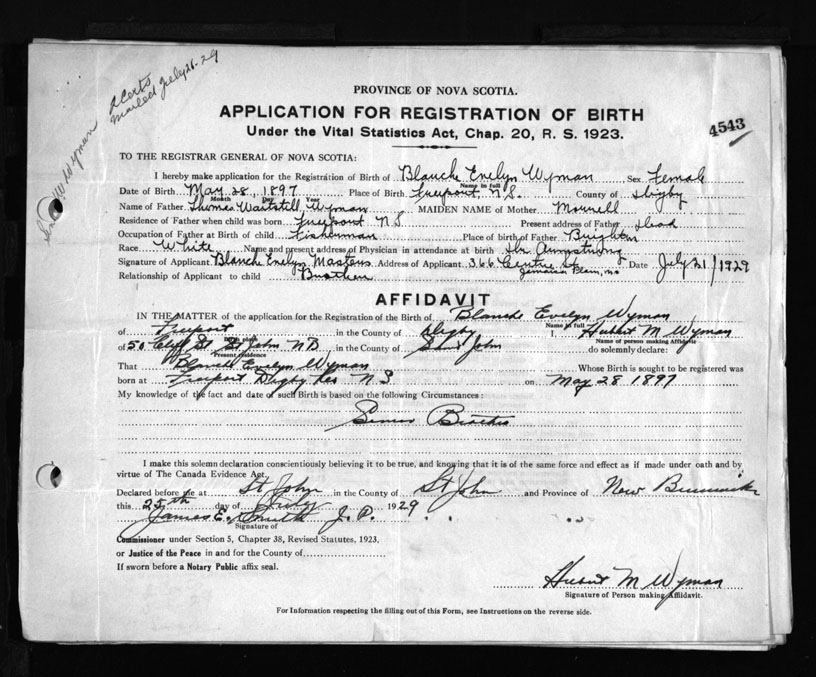 2 Certs
Mailed July 26-29
Wyman
PROVINCE OF NOVA SCOTIA.
APPLICATION FOR REGISTRATION OF BIRTH
Under the Vital Statistics Act, Chap. 20, R. S. 1923.
4543
TO THE REGISTRAR GENERAL OF NOVA SCOTIA:
I hereby make application for the Registration of Birth of Blanche Evelyn Wyman Sex Female
Name in full
Date of Birth May 28, 1897 Place of Birth Freeport, N.S. County of Digby
Month Day Year
Name of Father Thomas Waitstill Wyman MAIDEN NAME of Mother
Residence of Father when child was born Freeport N S Present address of Father Dead
Occupation of Father at Birth of child Fisherman Place of birth of Father Brighton
Race White Name and present address of Physician in attendance at birth Dr Armstrong
Signature of Applicant Blanche Evelyn Masters Address of Applicant 366 Centre St Date July 21/1929
Jamaica Plain, Ma
Relationship of Applicant to child Brother
AFFIDAVIT
IN THE MATTER of the application for the Registration of the Birth of Blanche Evelyn Wyman
Name in full
of Freeport in the County of Digby I, Hubert M Wyman
Name of person making Affidavit
of 50 St St John NB in the County of Saint John do solemnly declare:
Present residence
That Blanch Evelyn Wyman Whose Birth is sought to be registered was
born at Freeport Digby Co N S on May 28 1897
My knowledge of the fact and date of such Birth is based on the following Circumstances:
Senior Brother
I make this solemn declaration conscientiously believing it to be true, and knowing that it is of the same force and effect as if made under oath and by
virtue of The Canada Evidence Act.
Declared before me at St John in the County of St John and Province of New Brunswick
this 25th day of July 1929
James E. Smith J. P.
Signature of
Commissioner under Section 5, Chapter 38, Revised Statutes, 1923,
or Justice of the Peace in and for the County of
If sworn before a Notary Public affix seal.
Hubert M Wyman
Signature of Person making Affidavit.
For Information respecting the filling out of this Form, see Instructions on the reverse side.